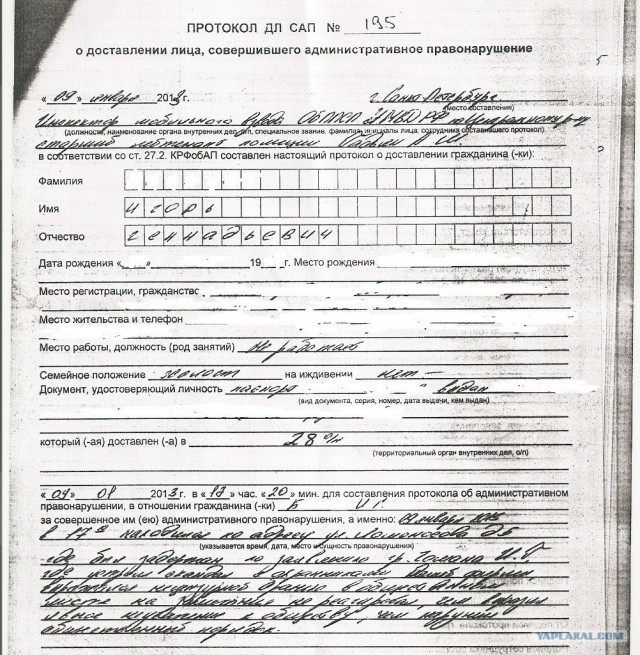 ПРОТОКОЛ ДЛ САП № 195
о доставлении лица, совершившего административное правонарушение
« 09 » января 2013г. г. Санкт-Петербург
(место составления)
Инспектор мобильного взвода
(должность, наименование органа внутренних дел, о/п, специальное звание, фамилия, инициалы лица, сотрудника составившего протокол)
старший лейтенант полиции
в соответствии со ст. 27.2. КРФобАП составлен настоящий протокол о доставлении гражданина (-ки):
Фамилия
Имя игорь
Отчество геннадьевич
Дата рождения « » 19 г. Место рождения
Место регистрации, гражданство
Место жительства и телефон
Место работы, должность (род занятий) не работает
Семейное положение холост на иждивении нет –
Документ, удостоверяющий личность паспорт выдан
(вид документа, серия, номер, дата выдачи, кем выдан)
который (-ая) доставлен (-а) в 28 о/п
(территориальный орган внутренних дел, о/п)
« 09 » 01 2013г. в « 17 » час. « 20 » мин. для составления протокола об административном
правонарушении, в отношении гражданина (-ки) Б И.Г.
за совершенное им (ею) административного правонарушения, а именно: 09 января 2013
в 17 находился по адресу ул. Ломоносова д.
(указывается время, дата, место и сущность правонарушения)
где был задержан по заявлению гр.
выражался нецензурной бранью в общественном
месте на замечания не реагировал, чем выразил
явное неуважение к обществу, чем нарушил
общественный порядок.
YAPLAKAL.COM